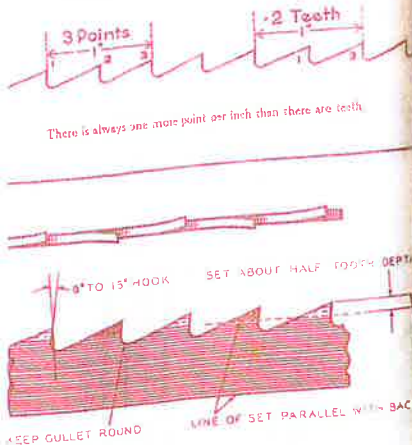 3 Points
1"
1 2 3
2 Teeth
1"
1 2
There is always one more point per inch than there are teeth
8° TO 15° HOOK
SET ABOUT HALF TOOTH DEPTH
KEEP GULLET ROUND
LINE OF SET PARALLEL WITH BAC